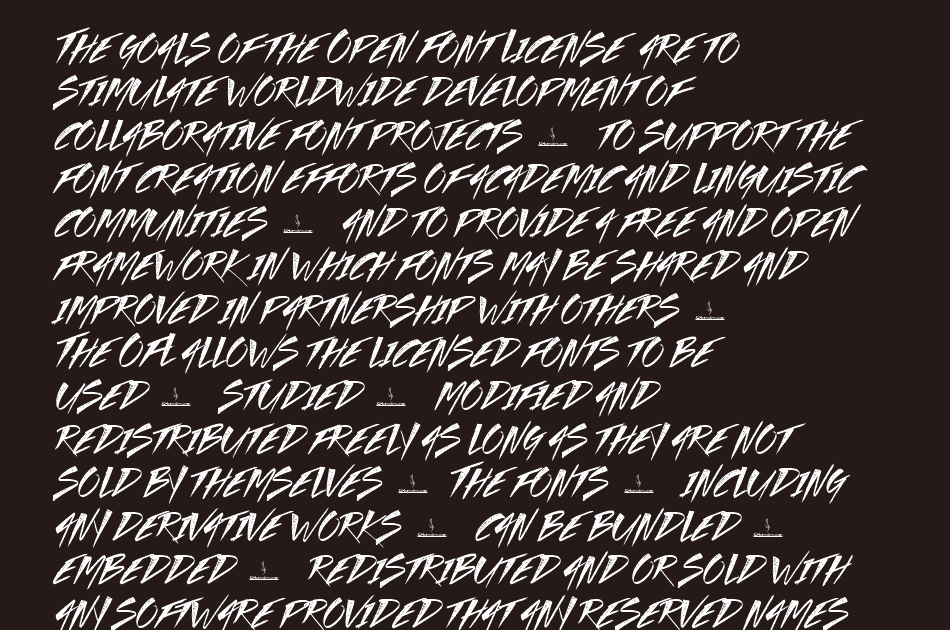 THE GOALS OF THE OPEN FONT LICENSE ARE TO
STIMULATE WORLDWIDE DEVELOPMENT OF
COLLABORATIVE FONT PROJECTS TO SUPPORT THE
FONT CREATION EFFORTS OF ACADEMIC AND LINGUISTIC
COMMUNITIES AND TO PROVIDE A FREE AND OPEN
FRAMEWORK IN WHICH FONTS MAY BE SHARED AND
IMPROVED IN PARTNERSHIP WITH OTHERS
THE OFL ALLOWS THE LICENSED FONTS TO BE
USED STUDIED MODIFIED AND
REDISTRIBUTED FREELY AS LONG AS THEY ARE NOT
SOLD BY THEMSELVES THE FONTS INCLUDING
ANY DERIVATIVE WORKS CAN BE BUNDLED
EMBEDDED REDISTRIBUTED AND OR SOLD WITH
ANY SOFTWARE PROVIDED THAT ANY RESERVED NAMES